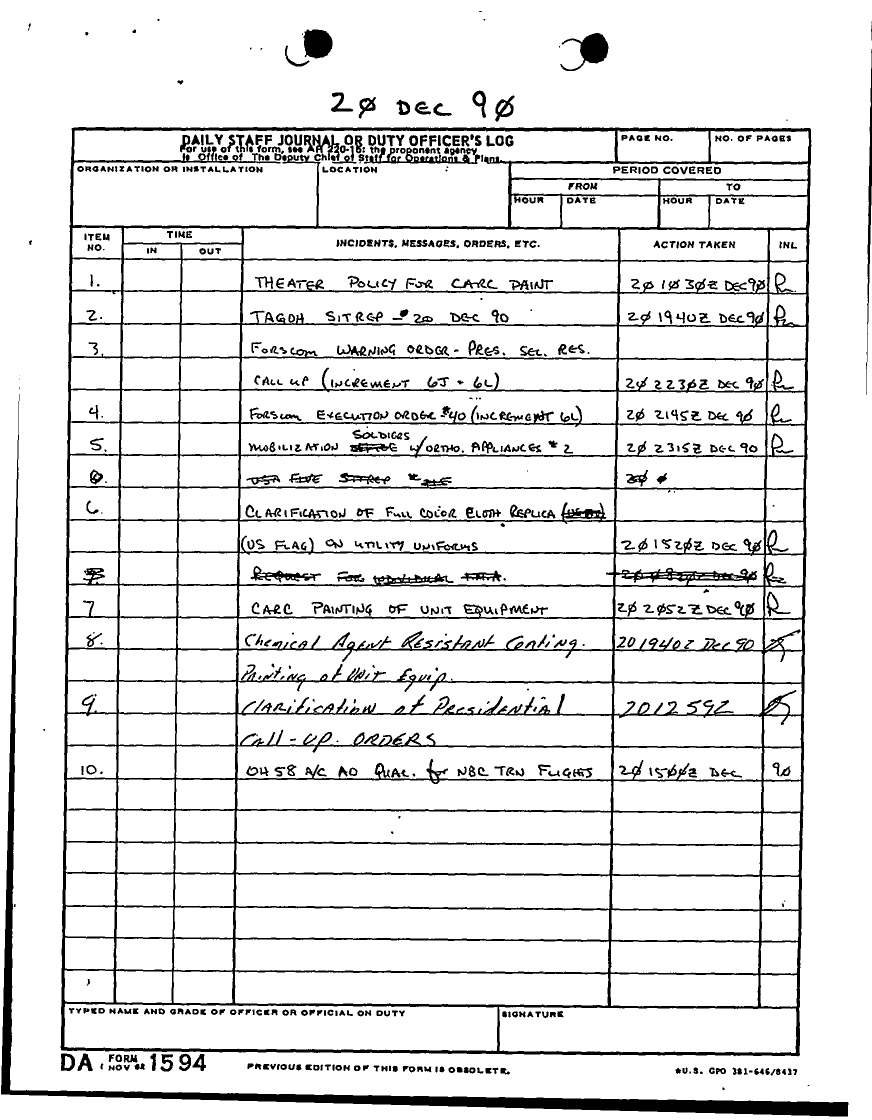 2Ø DEC 9Ø
DAILY STAFF JOURNAL OR DUTY OFFICER'S LOG
For use of this form, see AR 220-15; the proponent agency
is Office of The Deputy Chief of Staff for Operations & Plans.
PAGE NO.
NO. OF PAGES
ORGANIZATION OR INSTALLATION
LOCATION
PERIOD COVERED
FROM
TO
HOUR
DATE
HOUR
DATE
ITEM NO.
TIME
IN
OUT
INCIDENTS, MESSAGES, ORDERS, ETC.
ACTION TAKEN
INL
1. THEATER POLICY FOR CARC PAINT 2Ø1Ø3ØZ DEC 9Ø
2. TAGOH SITREP - # 20 DEC 90 2Ø194ØZ DEC 9Ø
3. FORSCOM WARNING ORDER - PRES. SEL. RES.
CALL UP (INCREMENT 6J + 6L) 2Ø223ØZ DEC 9Ø
4. FORSCOM EXECUTION ORDER #40 (INCREMENT 6L) 2Ø 2145Z DEC 9Ø
SOLDIERS
5. MOBILIZATION W/ORTHO. APPLIANCES # 2 2Ø 2315Z DEC 90
USA FIVE SITREP # 2Ø
6. CLARIFICATION OF FULL COLOR CLOTH REPLICA
(US FLAG) ON UTILITY UNIFORMS 2Ø152ØZ DEC 9Ø
REQUEST FOR INDIVIDUAL
7 CARC PAINTING OF UNIT EQUIPMENT 2Ø2Ø52Z DEC 9Ø
8. Chemical Agent Resistant Coating. 201940Z DEC 90
Painting of Unit Equip.
9. CLARification of Presidential 201259Z
CAll-UP. ORDERS
10. OH 58 A/C AO QUAL. for NBC TRN FLIGHTS 2Ø15ØØZ DEC 9Ø
TYPED NAME AND GRADE OF OFFICER OR OFFICIAL ON DUTY
SIGNATURE
DA FORM 1 NOV 62 1594
PREVIOUS EDITION OF THIS FORM IS OBSOLETE.
*U.S. GPO 381-646/8437